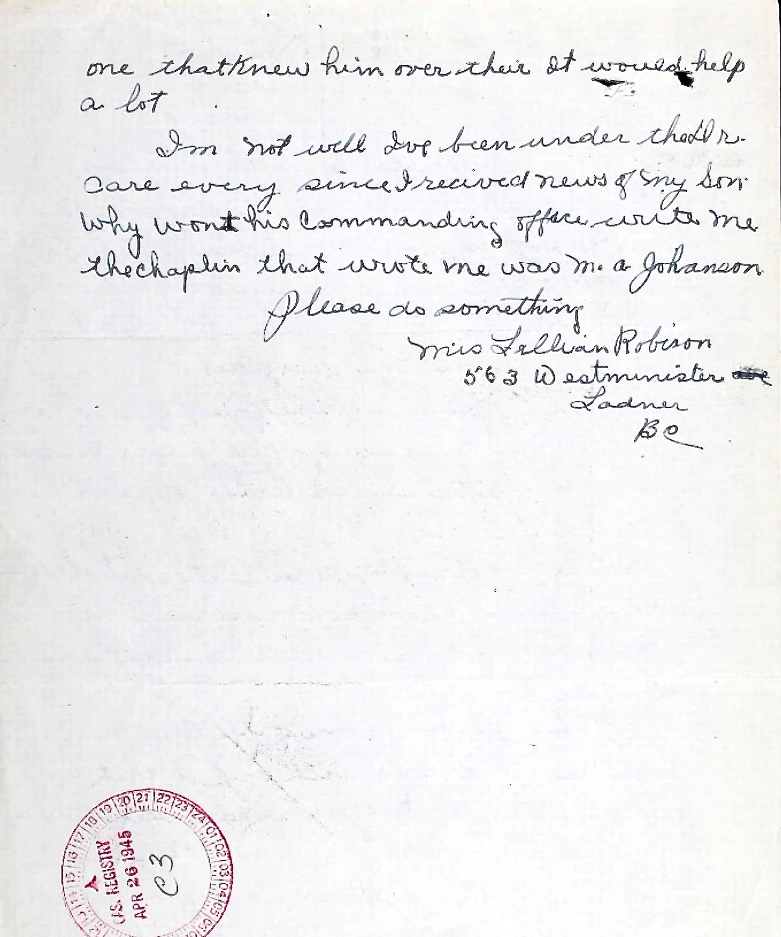 one that Knew him over their It would help
a lot
I'm not well I've been under the Dr.
Care every since I recived news of my Son.
Why wont his Commanding office write me
the chaplin that wrote me was M. a Johanson
Please do something
Mrs Lillian Robison
563 Westminister ave
Ladner
BC
A
REGISTRY
APR 26 1945
C3
15 16 17 18 19 20 21 22 23 24 01 02 03 04 05